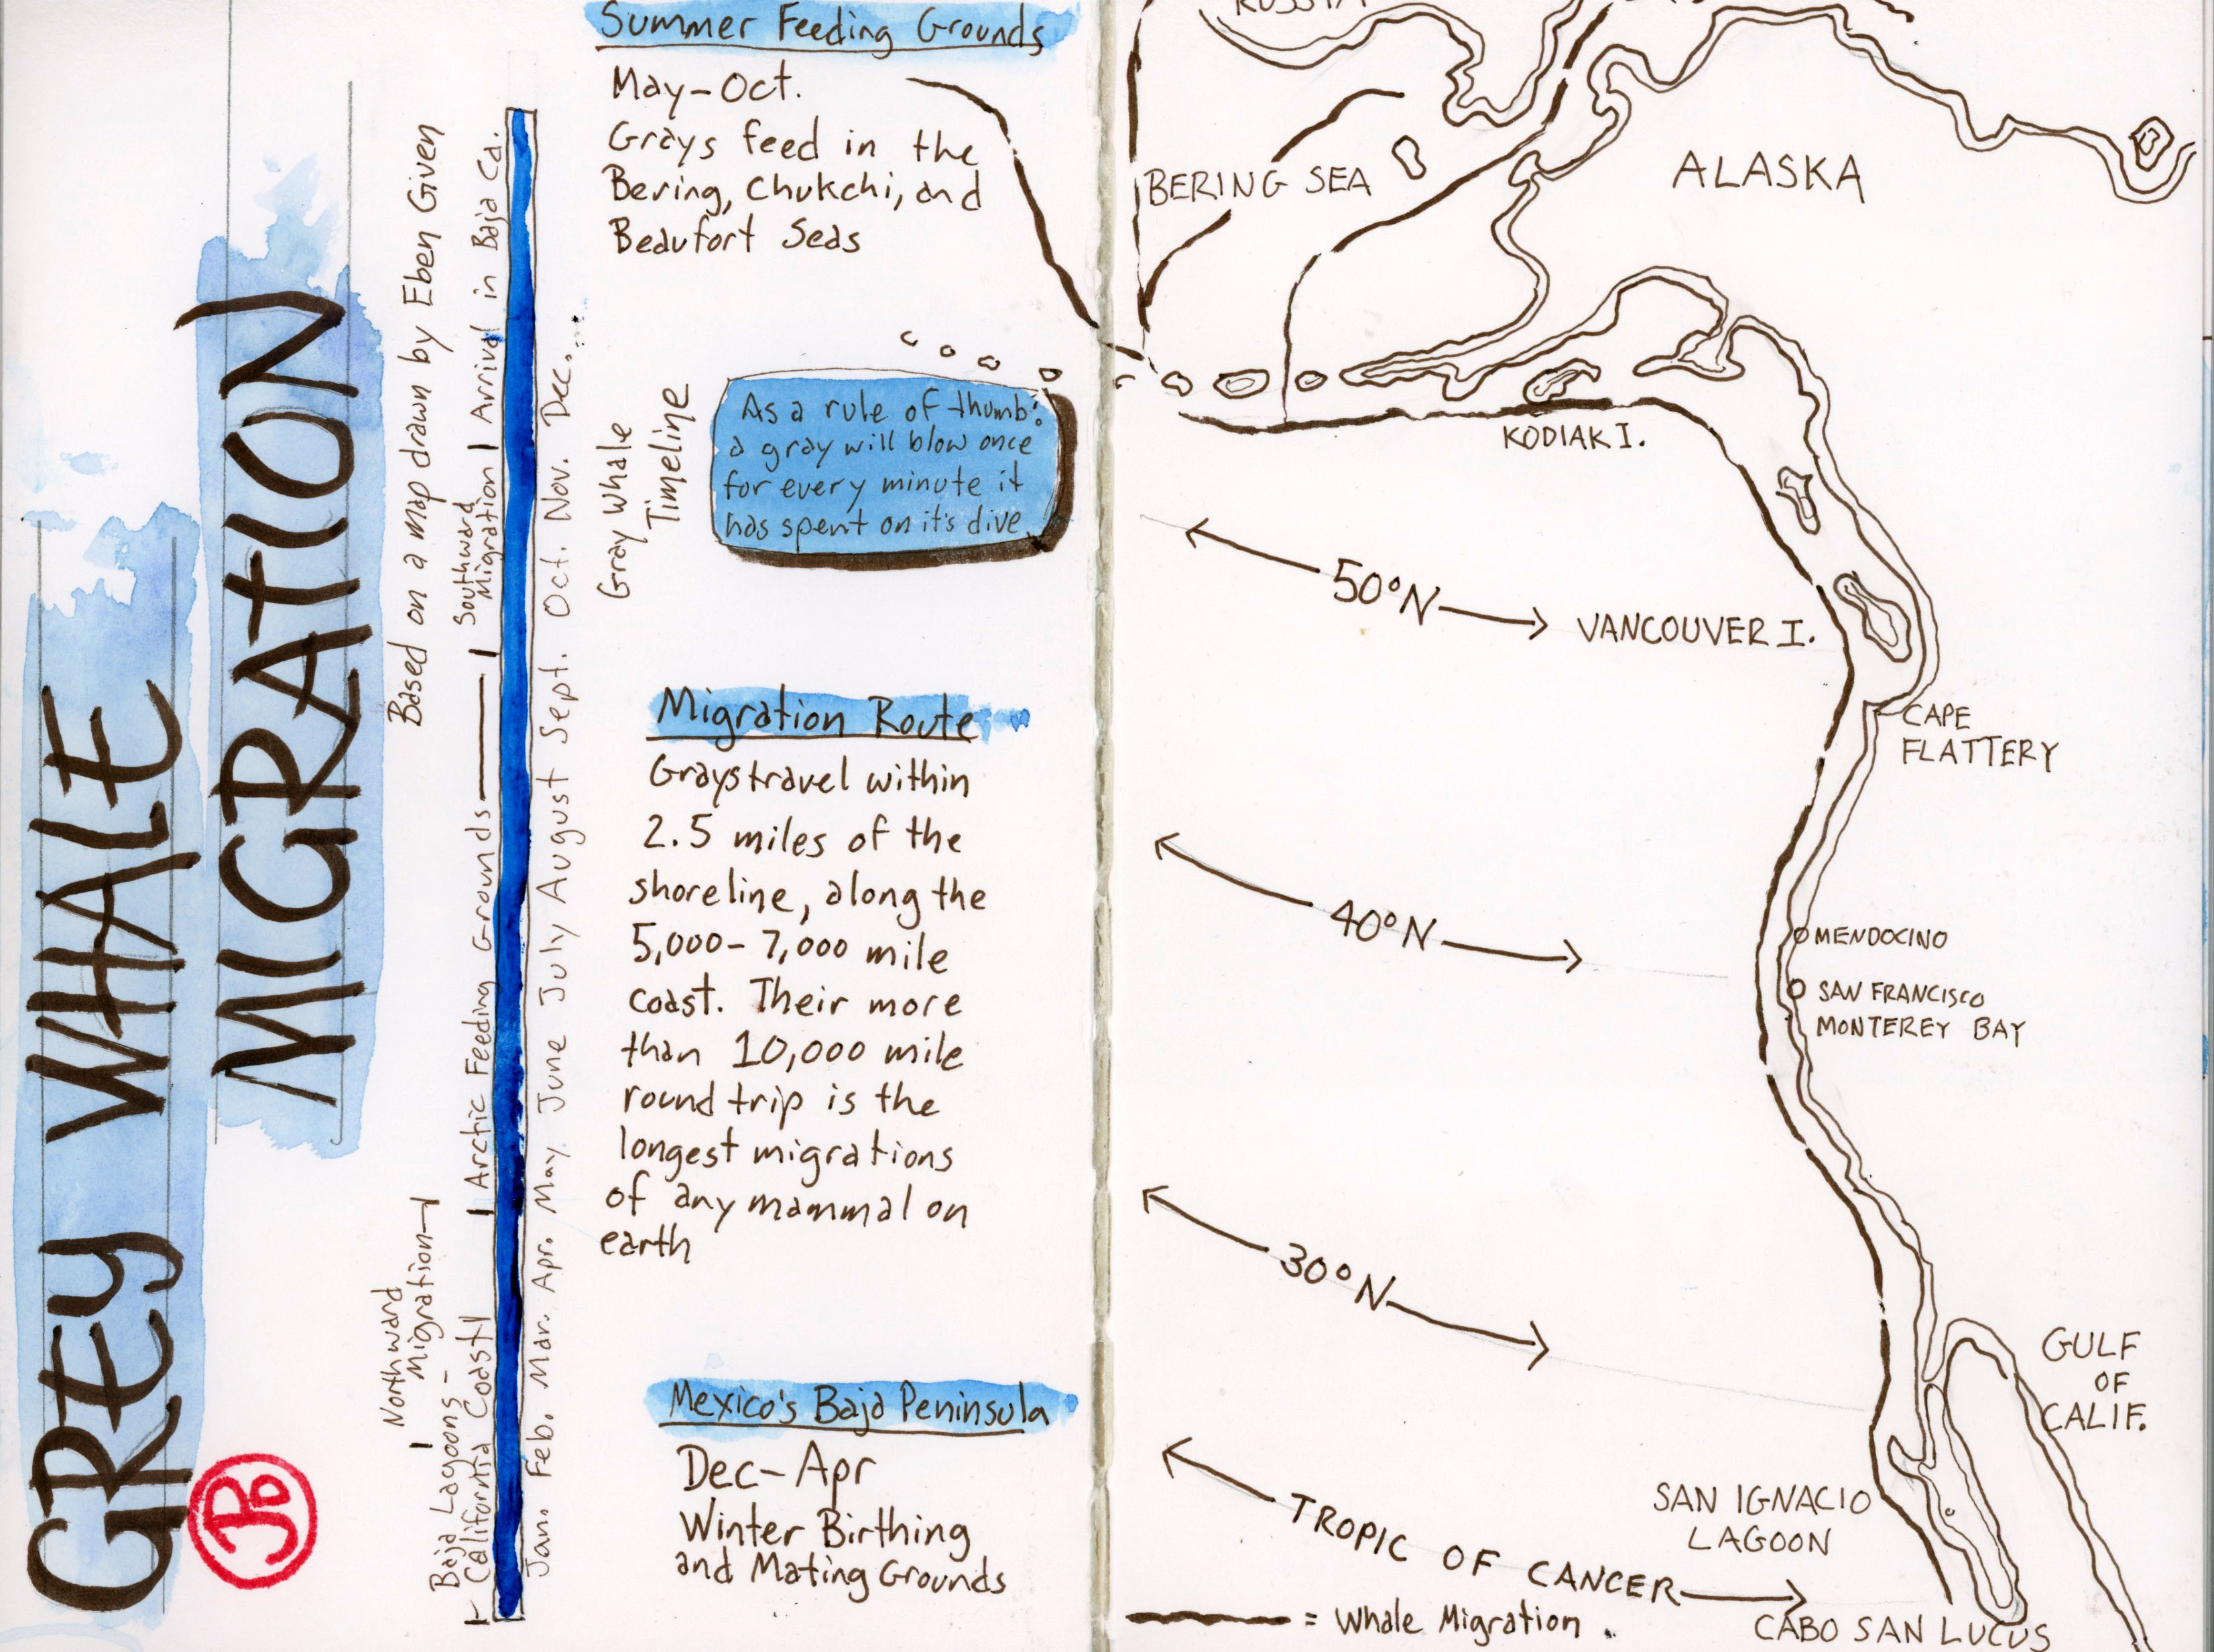 GREY WHALE
MIGRATION
JB
Based on a map drawn by Eben Given
Northward
Migration
Baja Lagoons -
California Coast
Arctic Feeding Grounds
Southward
Migration
Arrival in Baja Ca.
Jan. Feb. Mar. Apr. May June July August Sept. Oct. Nov. Dec...
Gray Whale
Timeline
Summer Feeding Grounds
May-Oct.
Grays feed in the
Bering, Chukchi, and
Beaufort Seas
As a rule of thumb:
a gray will blow once
for every minute it
has spent on it's dive
Migration Route
Grays travel within
2.5 miles of the
shoreline, along the
5,000-7,000 mile
coast. Their more
than 10,000 mile
round trip is the
longest migrations
of any mammal on
earth
Mexico's Baja Peninsula
Dec-Apr
Winter Birthing
and Mating Grounds
RUSSIA
BERING SEA
ALASKA
KODIAK I.
50°N
VANCOUVER I.
CAPE
FLATTERY
40°N
MENDOCINO
SAN FRANCISCO
MONTEREY BAY
30°N
GULF
OF
CALIF.
SAN IGNACIO
LAGOON
TROPIC OF CANCER
CABO SAN LUCUS
= Whale Migration